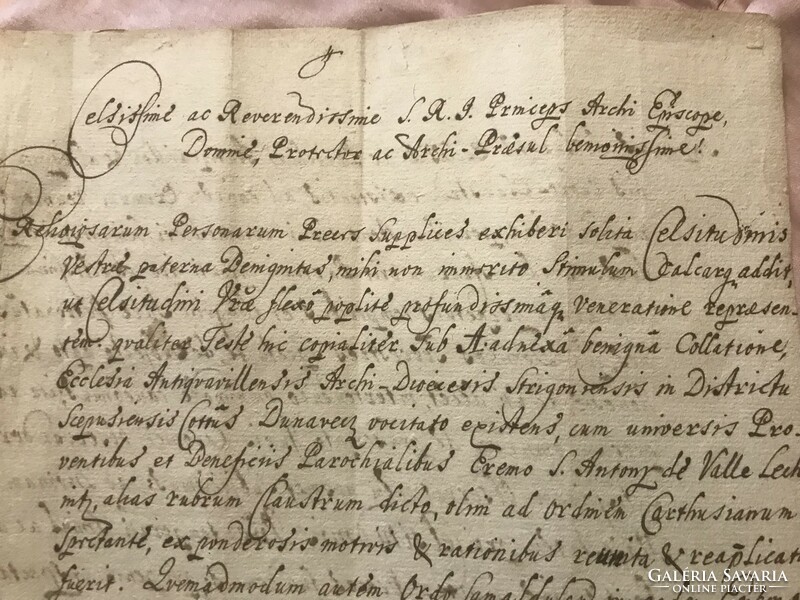 Celsissime ac Reverendissime S. R. I. Princeps Archi Epĩscope,
Domine, Protector ac Archi-Præsul benignissime!
Religiosarum Personarum Preces Supplices exhiberi solita Celsitudinis
Vestræ paterna Benignitas, mihi non immerito Stimulum addit,
ut Celsitudini Vræ flexô poplite profundissimâq. veneratione repræsen-
tem qvaliter Teste hic copialiter sub A. adnexâ benignâ Collatione,
Ecclesia Antiqvavillensis Archi-Dioecesis Strigoniensis in Districtu
Scepusiensis Cottûs Dunavecz vocitato existens, cum universis Pro-
ventibus et Beneficiis Parochialibus Eremo S. Antonÿ de Valle Lech
alias rubrum Claustrum dicto, olim ad Ordinem Carthusianum
Spectante, ex ponderosis motivis & rationibus reunita & reapplicata
fuerit. Qvemadmodum autem
GALÉRIA SAVARIA
ONLINE PIACTÉR